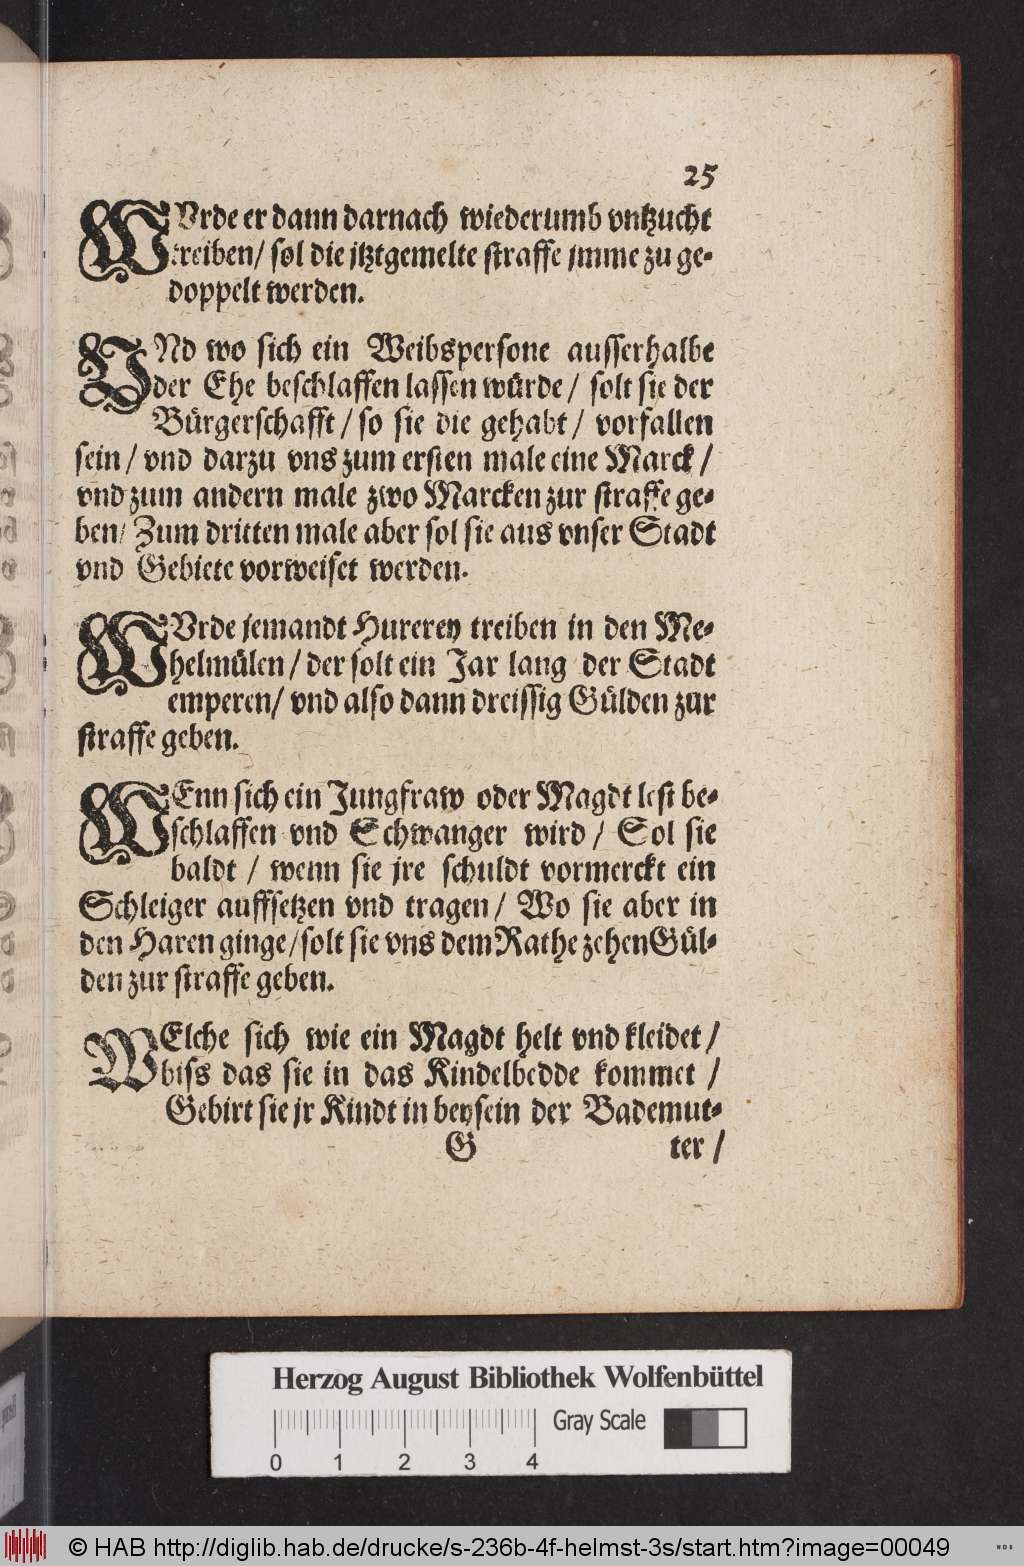 25
WUrde er dann darnach wiederumb vntzucht
treiben/ sol die jtztgemelte straffe jmme zu ge-
doppelt werden.
VNd wo sich ein Weibspersone ausserhalbe
der Ehe beschlaffen lassen würde / solt sie der
Bürgerschafft / so sie die gehabt / vorfallen
sein / vnd darzu vns zum ersten male eine Marck /
vnd zum andern male zwo Marcken zur straffe ge-
ben/ Zum dritten male aber sol sie aus vnser Stadt
vnd Gebiete vorweiset werden.
WUrde jemandt Hurerey treiben in den Me-
helmülen / der solt ein Jar lang der Stadt
emperen/ vnd also dann dreissig Gülden zur
straffe geben.
WEnn sich ein Jungfraw oder Magdt lest be-
schlaffen vnd Schwanger wird / Sol sie
baldt / wenn sie jre schuldt vormerckt ein
Schleiger auffsetzen vnd tragen / Wo sie aber in
den Haren ginge / solt sie vns dem Rathe zehen Gül-
den zur straffe geben.
WElche sich wie ein Magdt helt vnd kleidet /
biss das sie in das Kindelbedde kommet /
Gebirt sie jr Kindt in beysein der Bademut-
G ter /
Herzog August Bibliothek Wolfenbüttel
Gray Scale
0 1 2 3 4
© HAB http://diglib.hab.de/drucke/s-236b-4f-helmst-3s/start.htm?image=00049